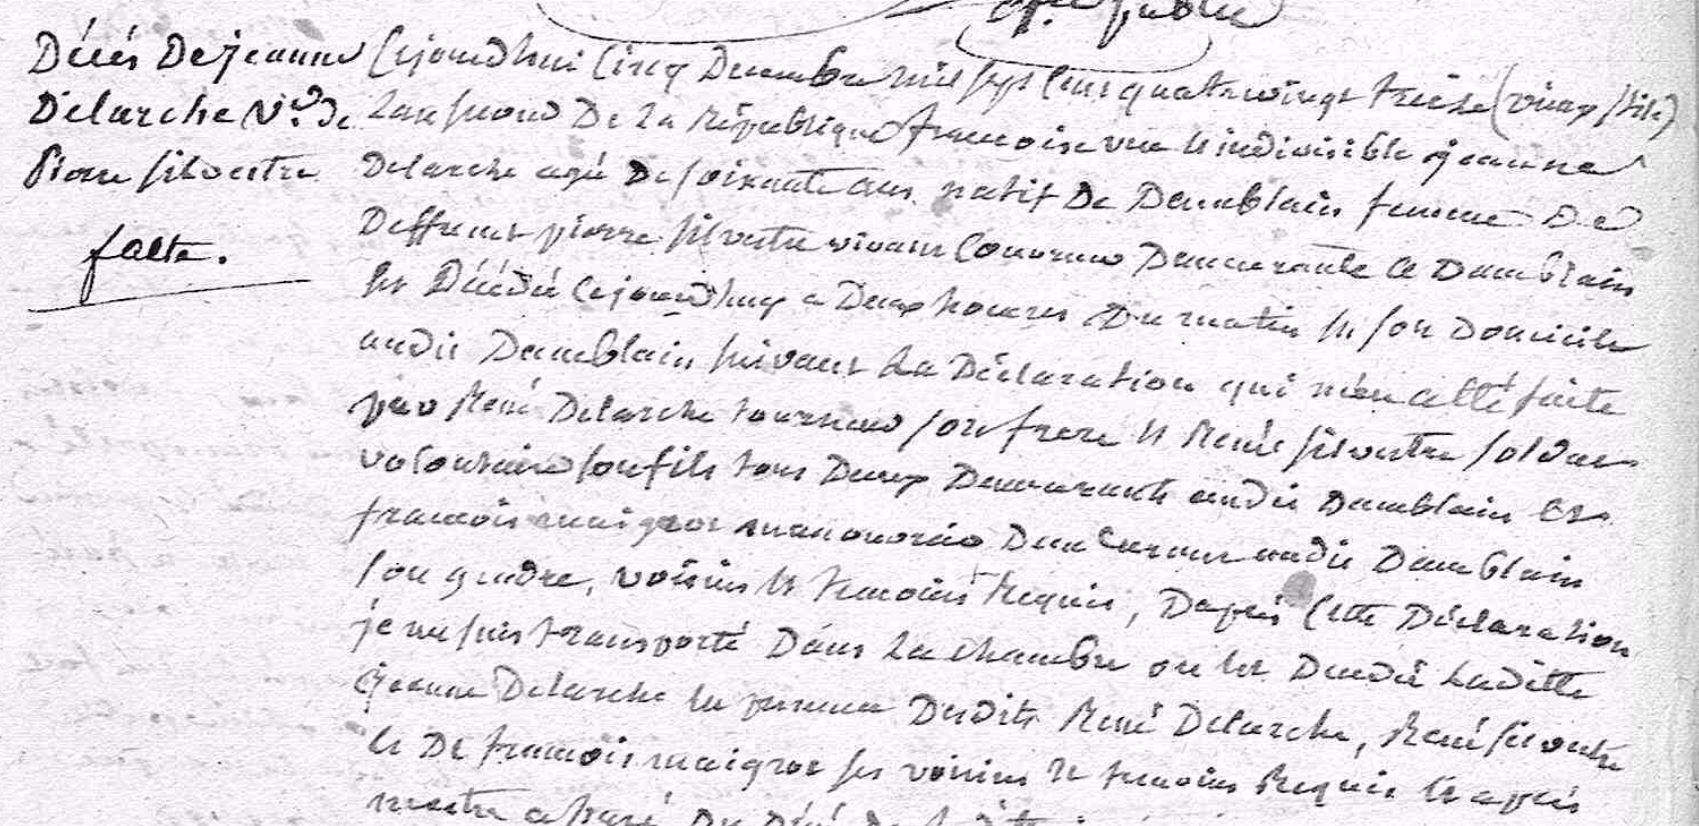 off. public
Décés De jeanne
Delarche Ve. De
Pierre silvestre
falte.
Cejourdhuy Cinq Decembre mil sept Cent quatrevingt treize (vieux stile)
Lan second De La République francoise une et indivisible jeanne
Delarche agé De soixante ans natif De Damblain femme De
Deffunct pierre silvestre vivant Couvreur Demeurante a Damblain
est Décédé Cejourdhuy a Deux heures Du matin en son Domicile
audit Damblain suivant La Déclaration qui m'en a etté faite
par René Delarche tourneur son frere et René silvestre soldat
volontaire son fils tous Deux Demeurants audit Damblain et
francois maigrot manouvrier Demeurant audit Damblain
son gendre, voisins et temoins Requis, Daprès Cette Déclaration
je me suis transporté Dans La chambre ou est Decedé Laditte
jeanne Delarche en presence Desdits René Delarche, René silvestre
et De francois maigrot ses voisins et temoins Requis et après
mestre assuré Du Décé De Laditte